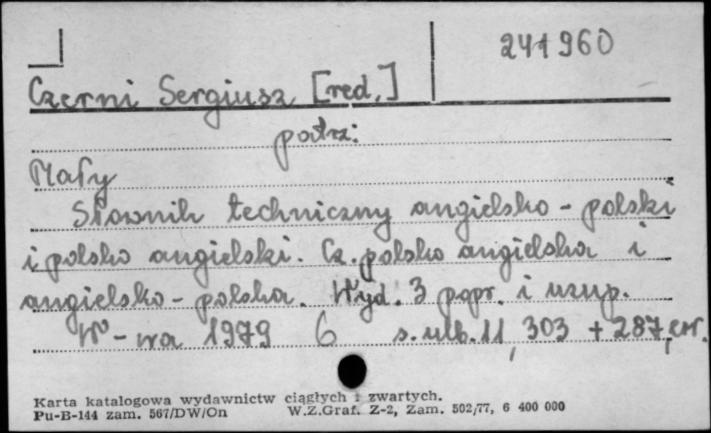 241960
Czerni Sergiusz [red.]
patrz:
Mały
Słownik techniczny angielsko - polski
i polsko angielski. Cz. polsko angielska i
angielsko - polska. Wyd. 3 popr. i uzup.
W-wa 1979 6 s. nlb. 11, 303 + 287,
Karta katalogowa wydawnictw ciągłych i zwartych.
Pu-B-144 zam. 567/DW/On W.Z.Graf. Z-2, Zam. 502/77, 6 400 000